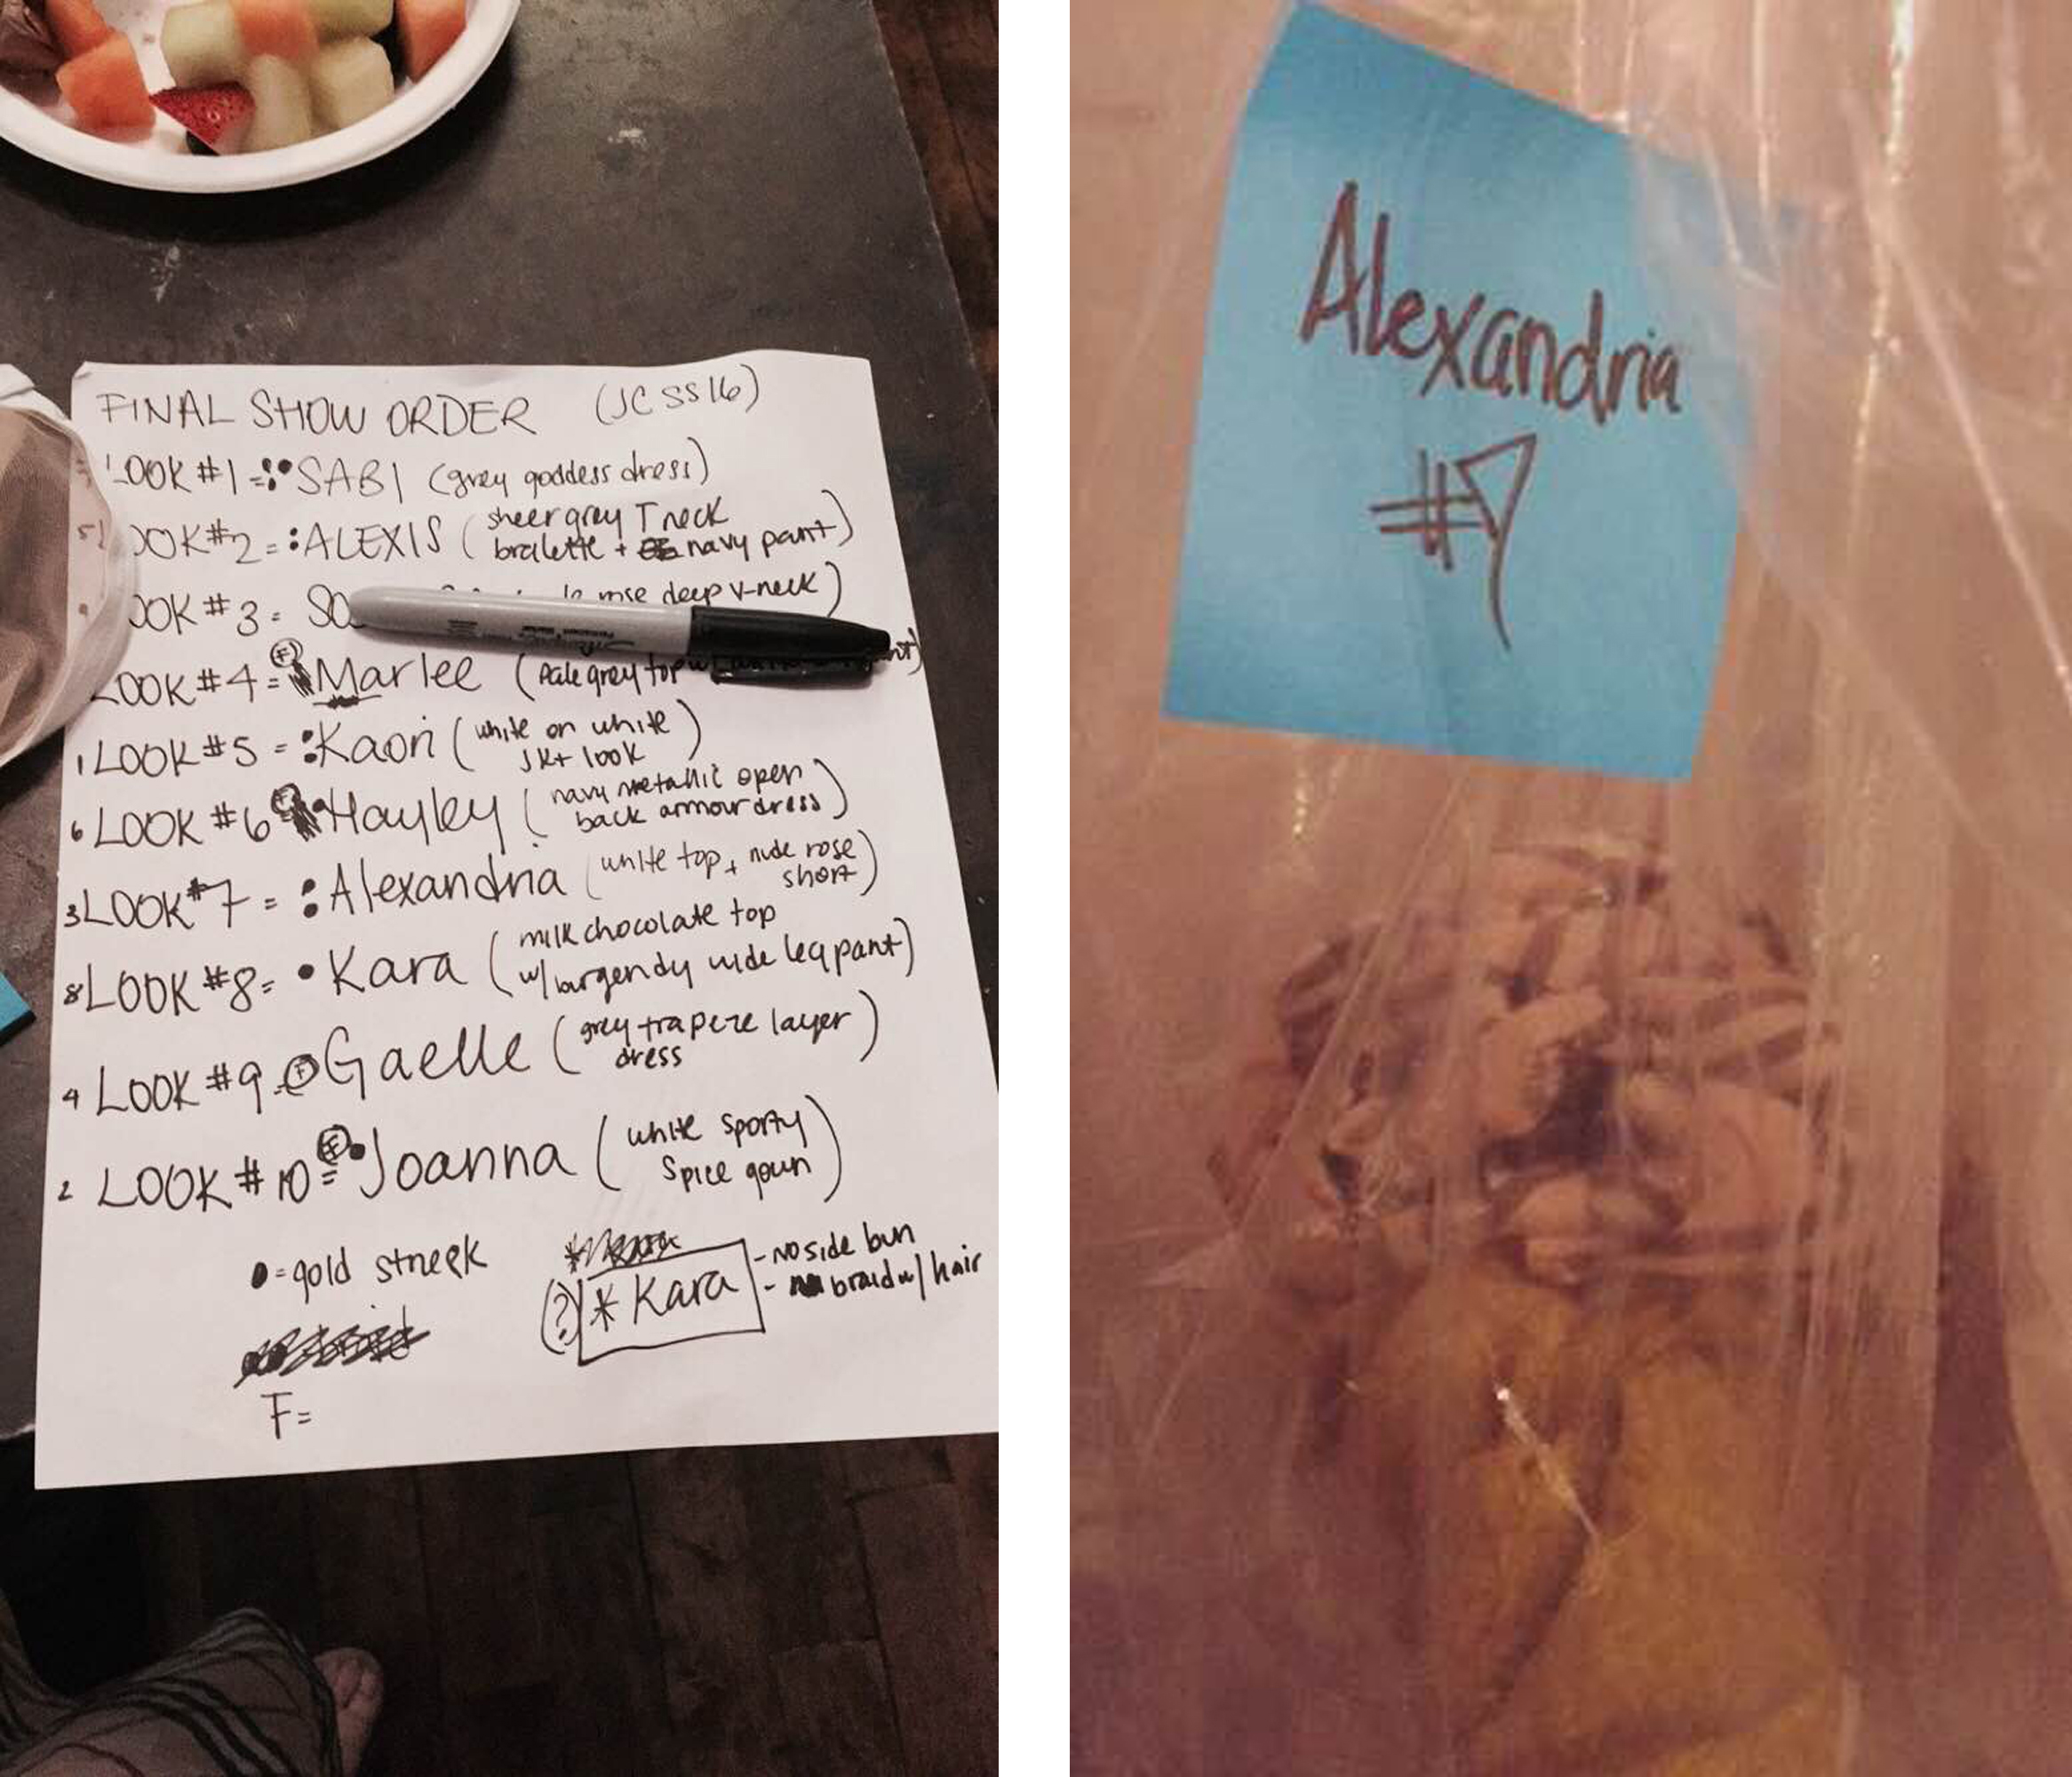 FINAL SHOW ORDER (JC SS16)
LOOK #1 = SABI (grey goddess dress)
5 OOK #2 = : ALEXIS (sheer grey T neck
bralette + navy pant)
OOK #3 = SO rose deep v-neck)
LOOK #4 = F Marlee (Pale grey top
1 LOOK #5 = : Kaori (white on white
JKt look)
6 LOOK #6 F Hayley (navy metallic open
back armour dress)
3 LOOK #7 = : Alexandria (white top + nude rose
short)
8 LOOK #8 = • Kara (milk chocolate top
w/ burgendy wide leg pant)
4 LOOK #9 F Gaelle (grey trapeze layer
dress)
2 LOOK #10 = F • Joanna (white sporty
Spice goun)
• = gold streek
- NO side bun
(?) * Kara - braid w/ hair
F =
Alexandria
#7